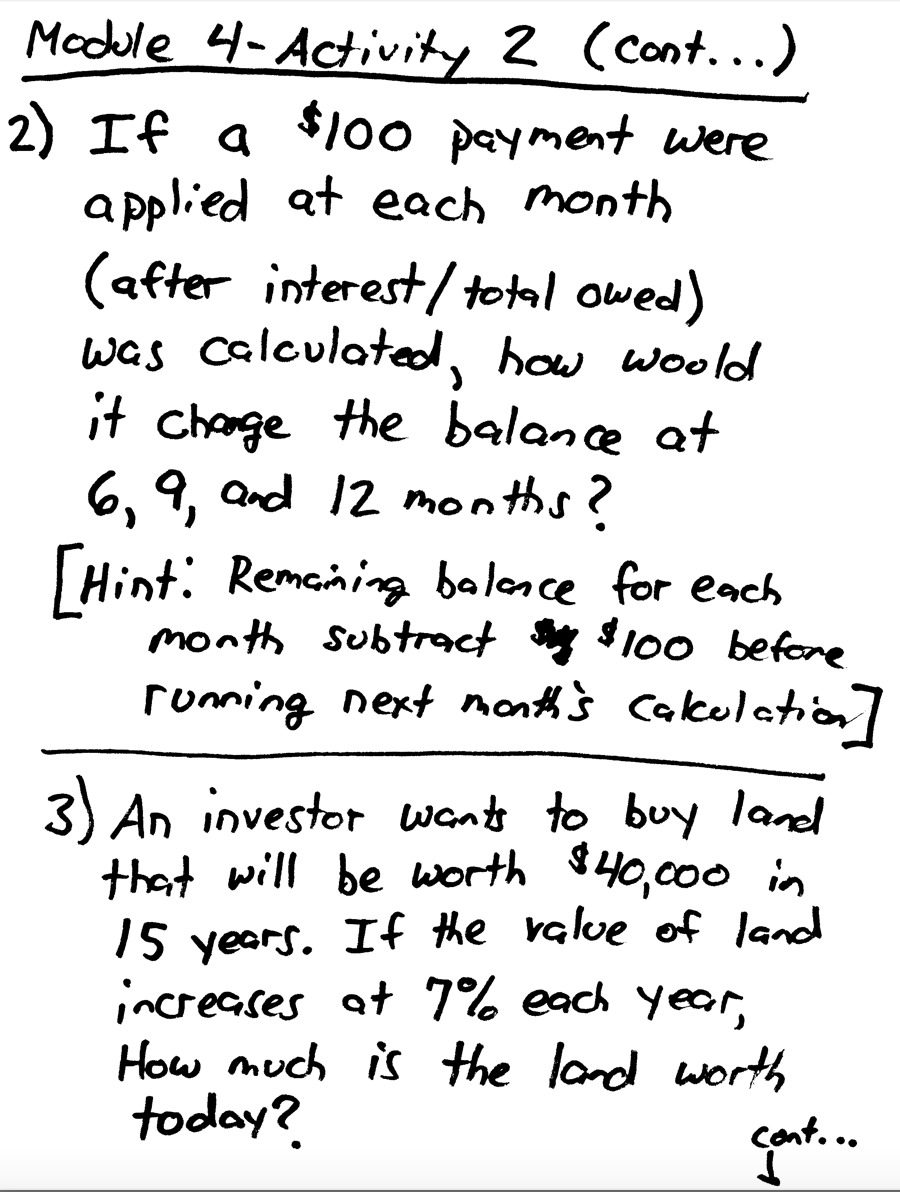 Module 4-Activity 2 (cont...)
2) If a $100 payment were
applied at each month
(after interest/total owed)
was calculated, how would
it change the balance at
6, 9, and 12 months?
[Hint: Remaining balance for each
month subtract $100 before
running next month's calculation]
3) An investor wants to buy land
that will be worth $40,000 in
15 years. If the value of land
increases at 7% each year,
How much is the land worth
today?
cont...